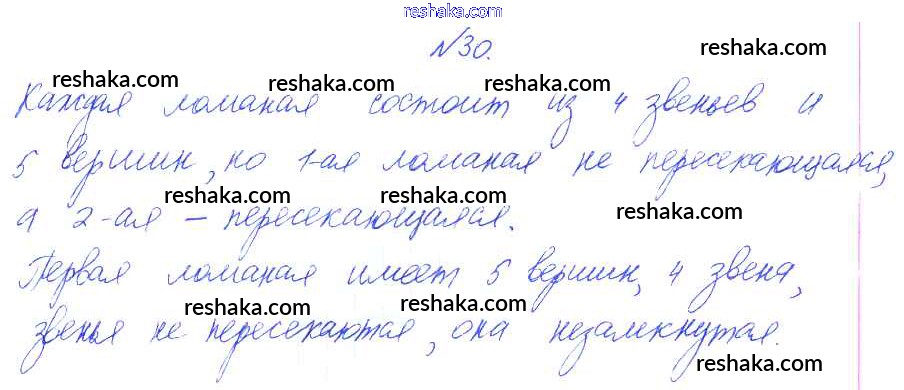 reshaka.com
№30.
reshaka.com
reshaka.com reshaka.com reshaka.com
Каждая ломаная состоит из 4 звеньев и
reshaka.com reshaka.com reshaka.com
5 вершин, но 1-ая ломаная не пересекающаяся,
reshaka.com reshaka.com reshaka.com
а 2-ая – пересекающаяся.
Первая ломаная имеет 5 вершин, 4 звена,
reshaka.com reshaka.com
звенья не пересекаются, она незамкнутая.
reshaka.com